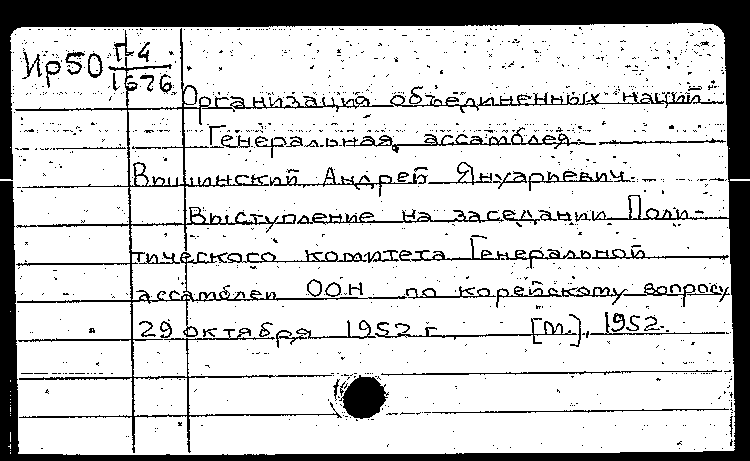 Ир50 Г-4/1676
Организация объединенных наций.
Генеральная ассамблея.
Вышинский Андрей Януарьевич.
Выступление на заседании Поли-
тического комитета Генеральной
ассамблеи ООН по корейскому вопросу
29 октября 1952 г. [М.], 1952.